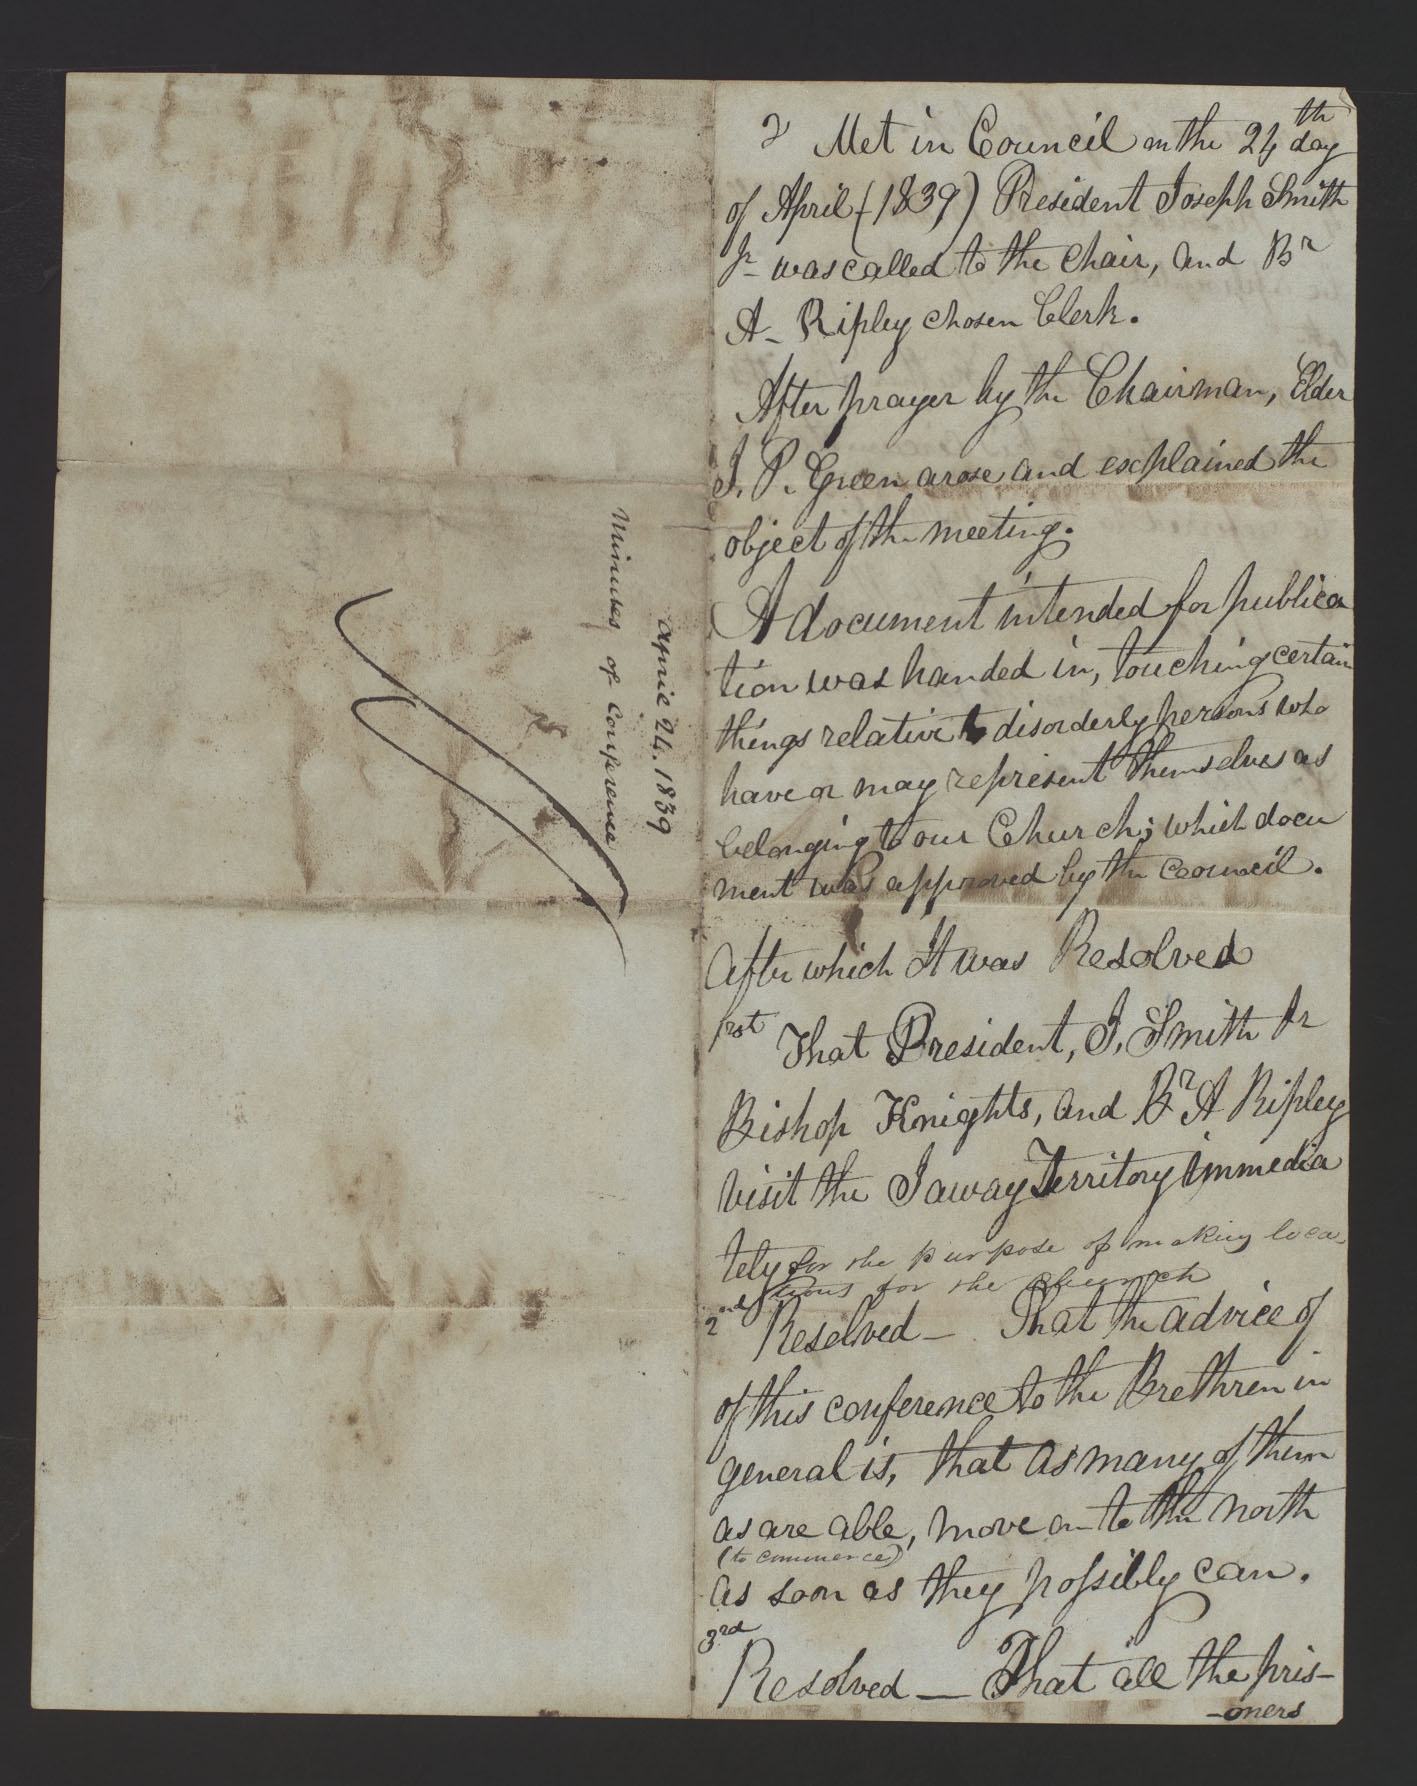 2 Met in Council on the 24th day
of April (1839) President Joseph Smith
Jr was called to the Chair, and Br
A- Ripley chosen Clerk.
After prayer by the Chairman, Elder
J. P. Green arose and explained the
object of the meeting.
A document intended for publica
tion was handed in, touching certain
things relative to disorderly persons who
have or may represent themselves as
belonging to our Church; which docu
ment was approved by the council.
After which It was Resolved
1rst That President, J, Smith Jr
Bishop Knights, and Br A Ripley
visit the Iaway Territory immedia
tely for the purpose of making loca-
tions for the church
2nd Resolved — That the advice of
of this conference to the Brethren in
general is, that as many of them
as are able, move on to the north
(to commerce)
as soon as they possibly can.
3rd
Resolved — That all the pris-
-oners
April 24. 1839
Minutes of Conference